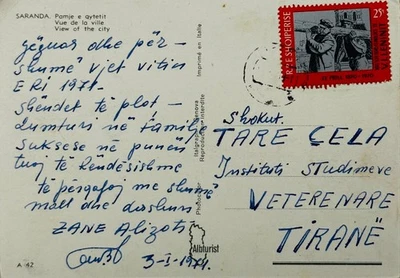 SARANDA. Pamje e qytetit
Vue de la ville
View of the city
gëzuar dhe për
shumë vjet vitin
E RI 1971.
shëndet të plot -
lumturi në familje
suksese në punën
tuaj të
të përqafoj me shumë
mall dhe dashuri
ZANE Alizoti
3-I-1971.
A 42
Imprimé en Italie
Albturist
R.P.E SHQIPERISE
25q
Shokut.
TARE ÇELA
Instituti studimeve
VETERENARE
TIRANË